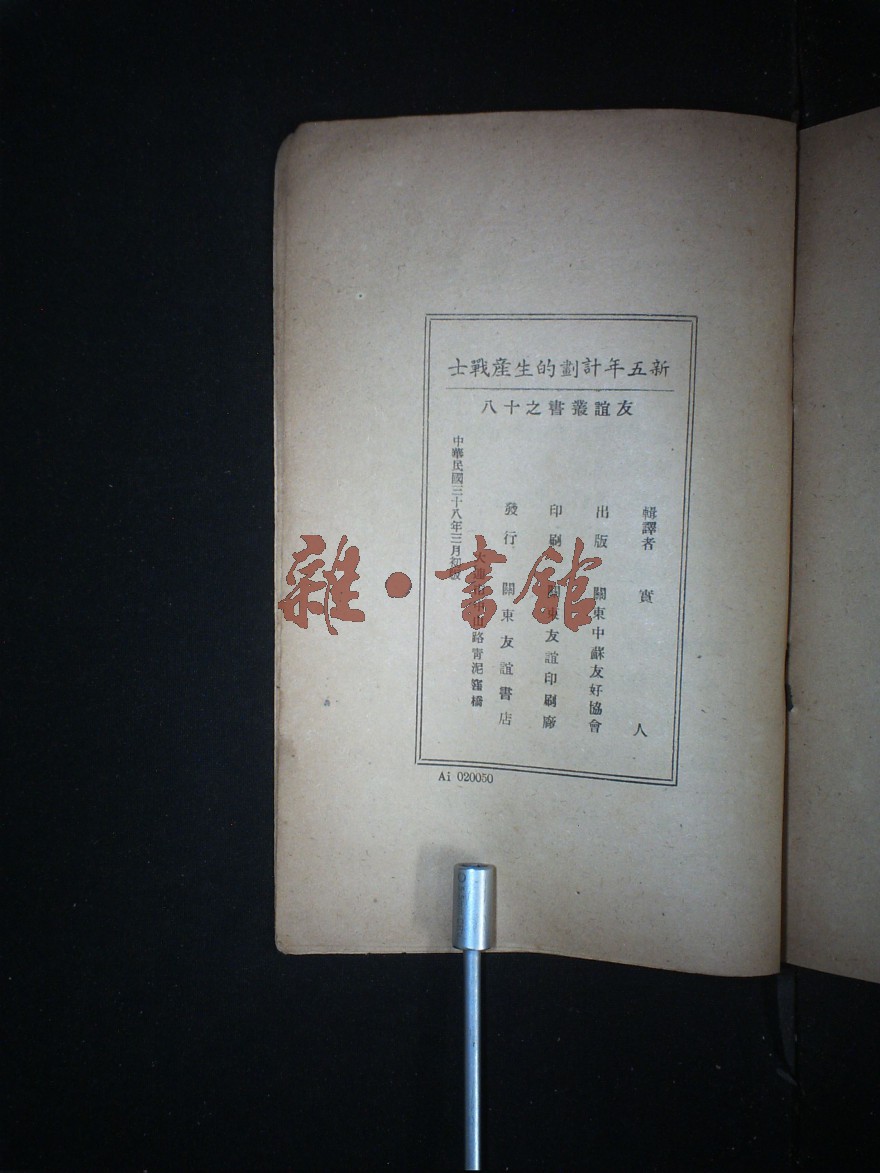 新五年計劃的生產戰士
友誼叢書之十八
輯譯者 實人
出版 關東中蘇友好協會
印刷 關東友誼印刷廠
發行 關東友誼書店
大連市中山路青泥窪橋
中華民國三十八年三月初版
Ai 020050
雜·書館